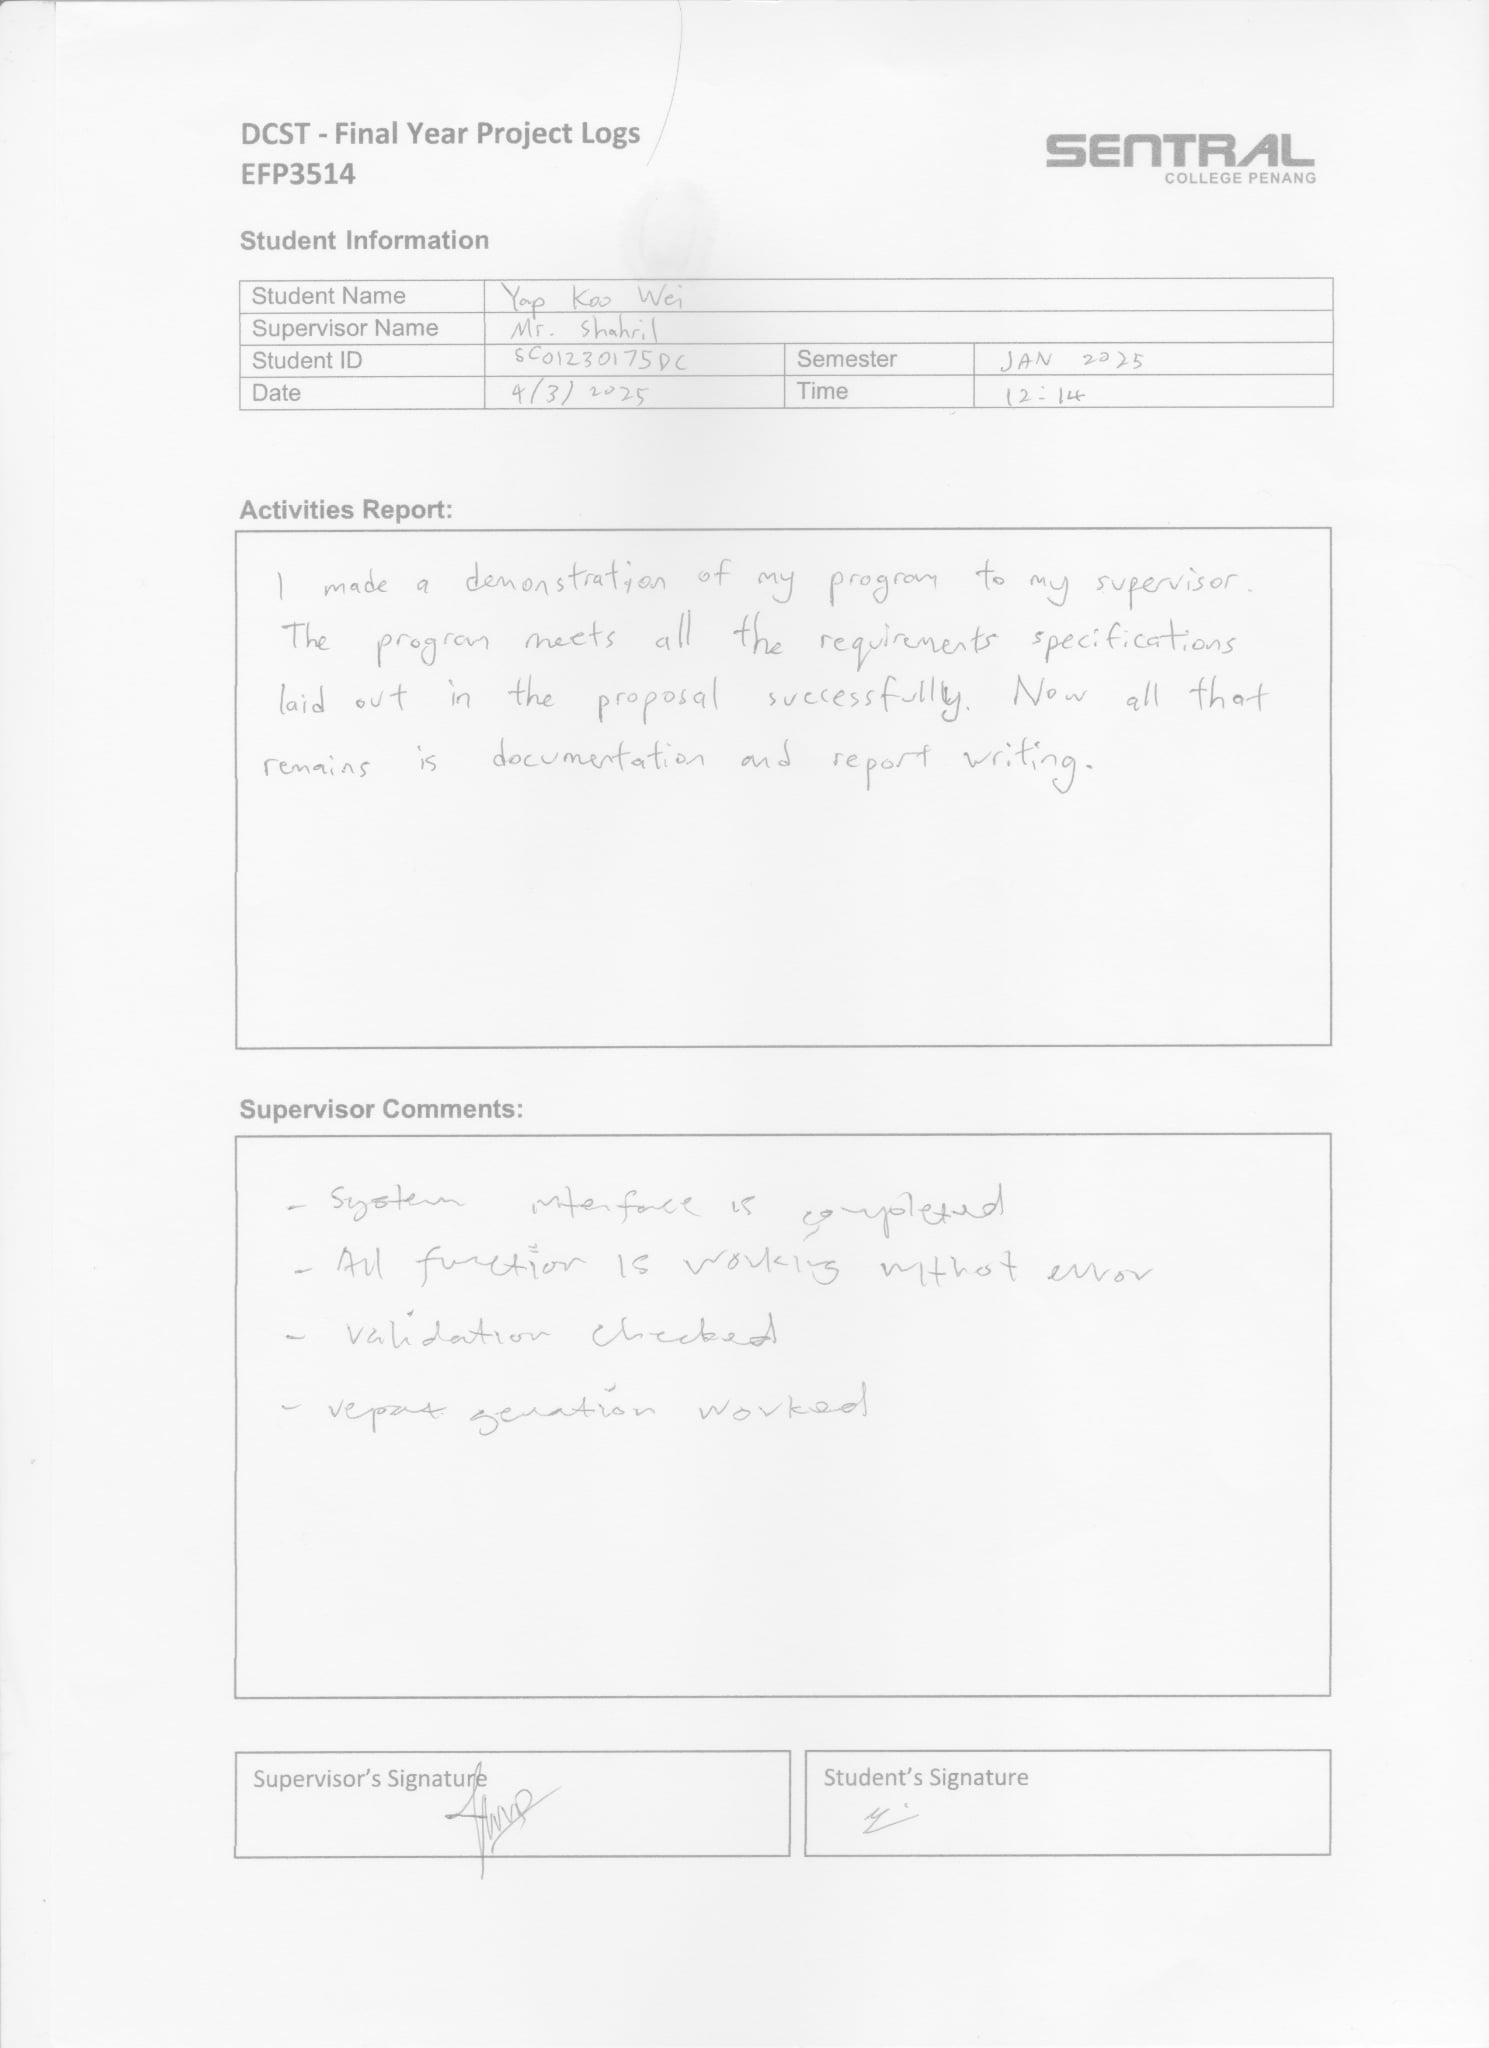 DCST - Final Year Project Logs
EFP3514
SENTRAL
COLLEGE PENANG
Student Information
Student Name Yap Koo Wei
Supervisor Name Mr. Shahril
Student ID SC01230175DC Semester JAN 2025
Date 4/3/2025 Time 12:14
Activities Report:
I made a demonstration of my program to my supervisor.
The program meets all the requirements specifications
laid out in the proposal successfully. Now all that
remains is documentation and report writing.
Supervisor Comments:
- System interface is completed
- All function is working withot error
- Validation checked
- report genation worked
Supervisor's Signature
Student's Signature